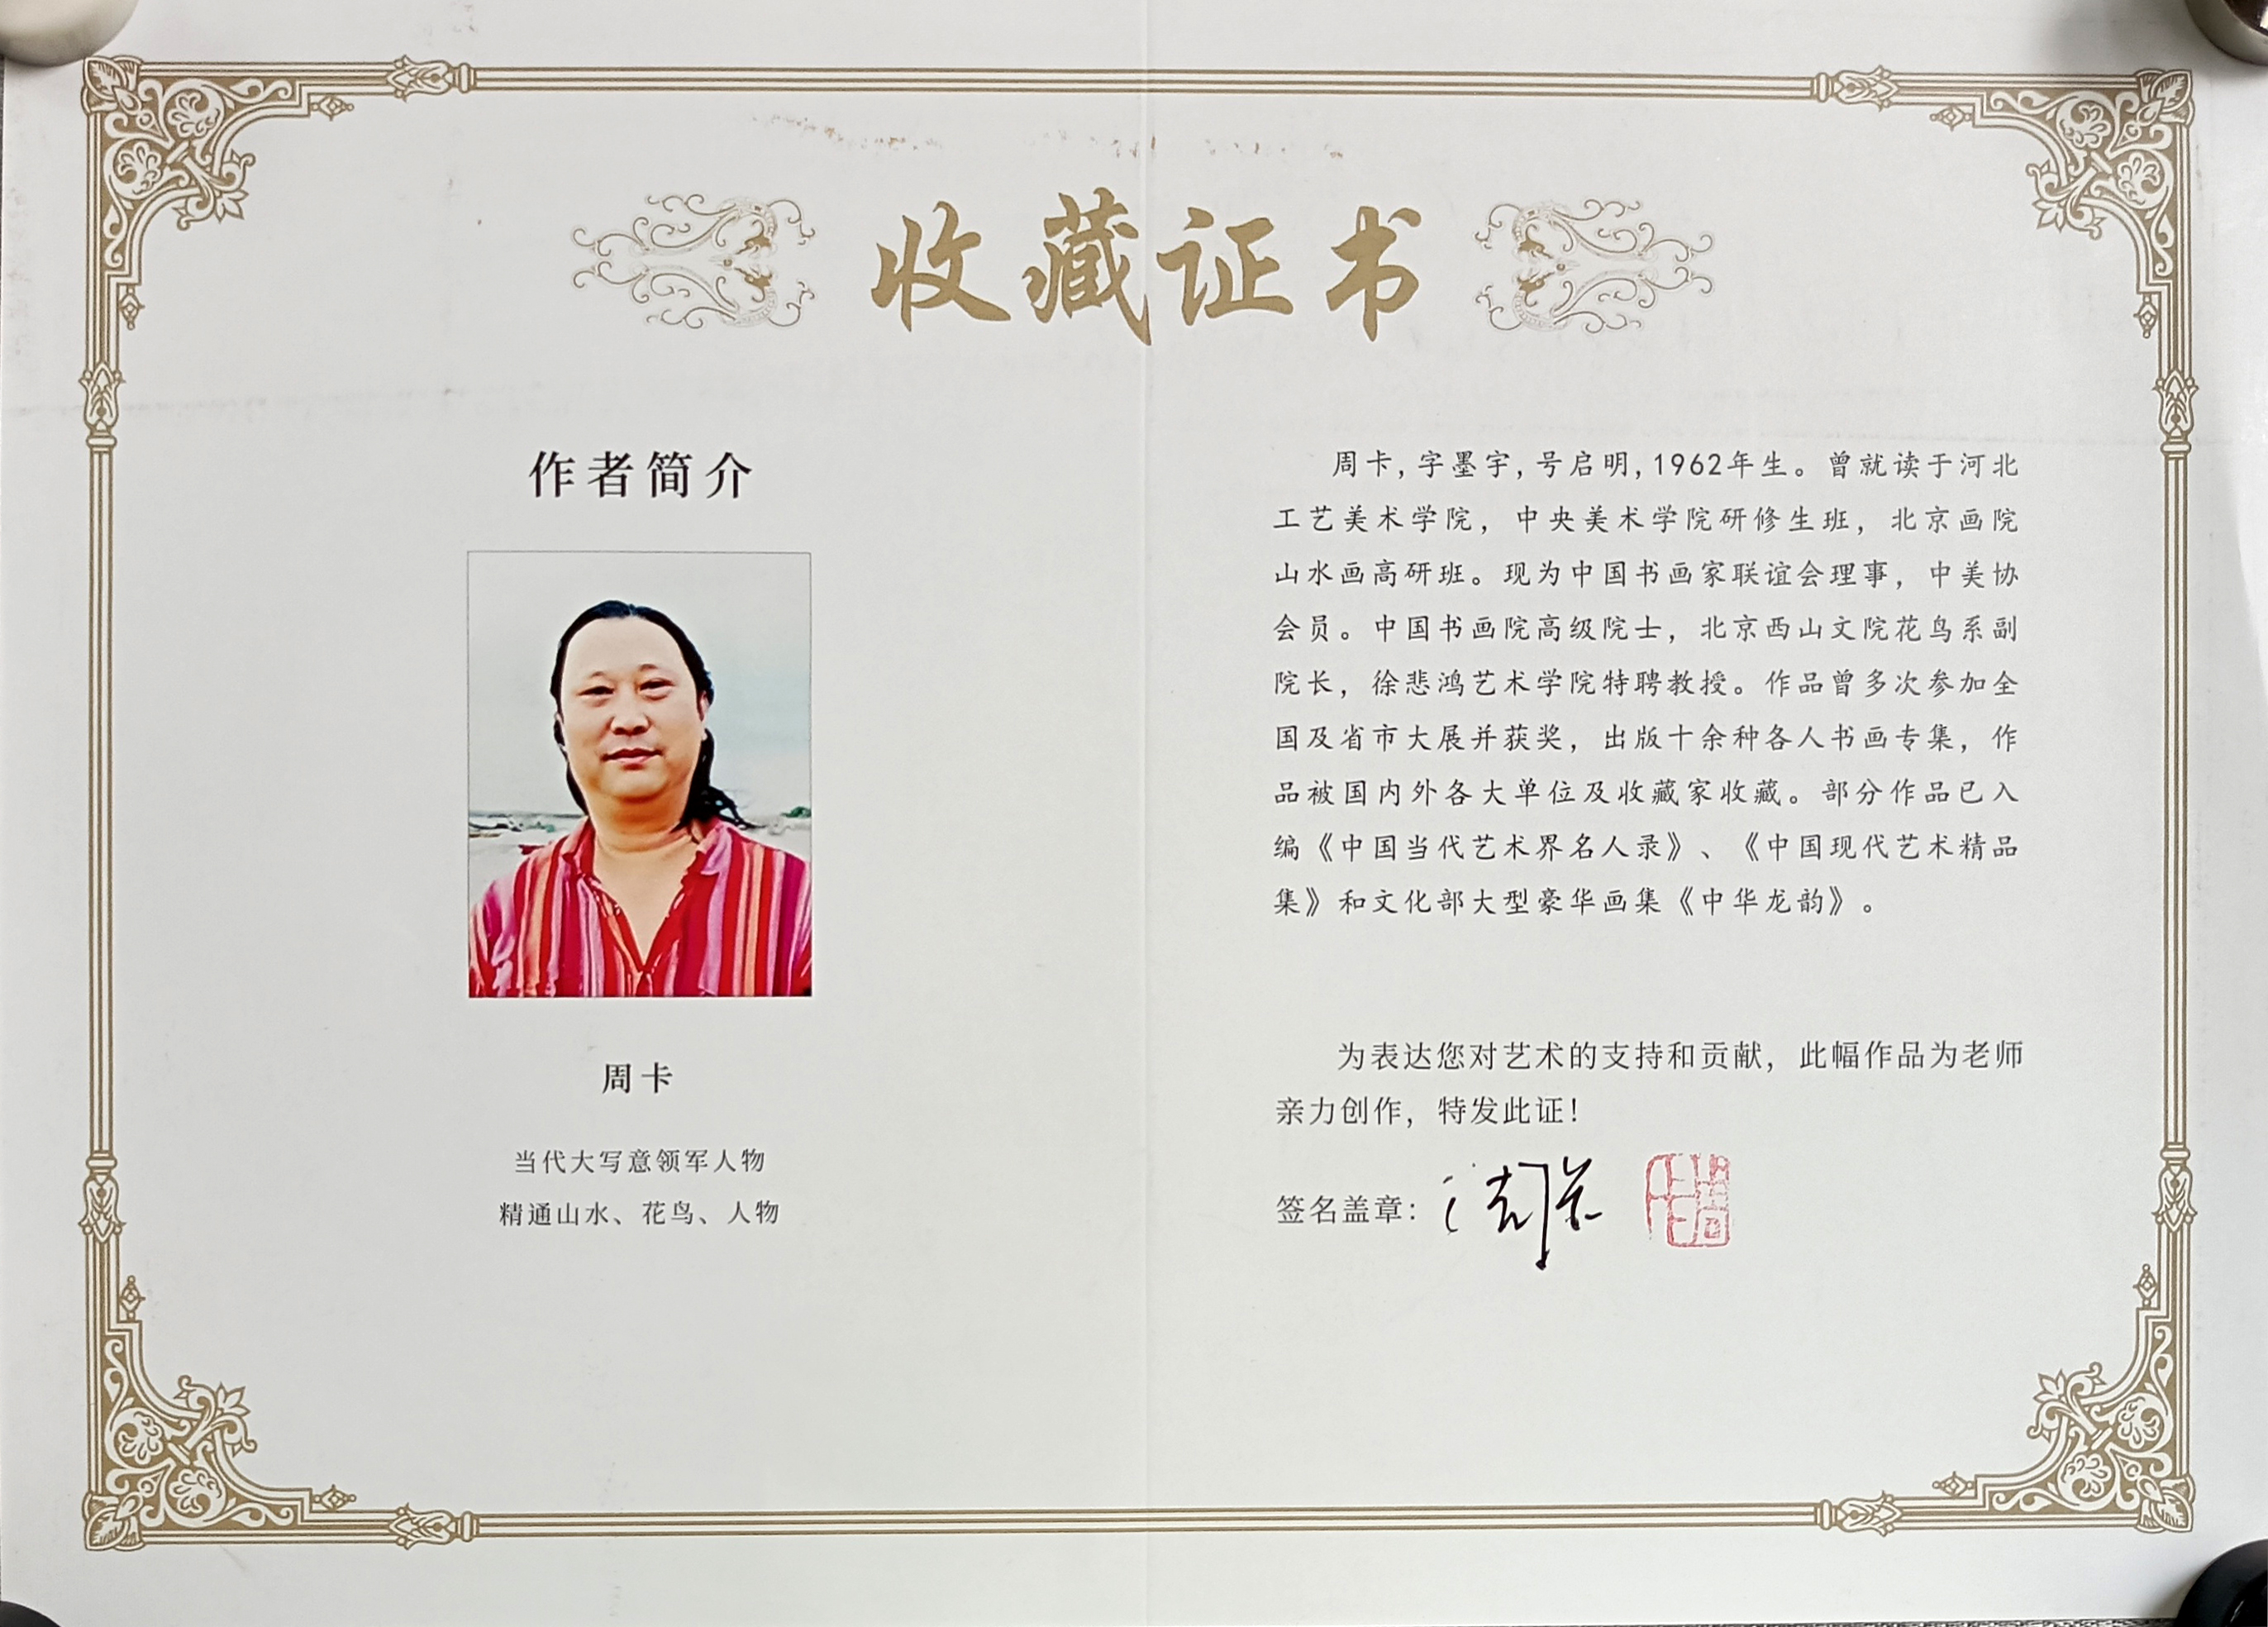 收藏证书
作者简介
周卡
当代大写意领军人物
精通山水、花鸟、人物
周卡,字墨宇,号启明,1962年生。曾就读于河北
工艺美术学院，中央美术学院研修生班，北京画院
山水画高研班。现为中国书画家联谊会理事，中美协
会员。中国书画院高级院士，北京西山文院花鸟系副
院长，徐悲鸿艺术学院特聘教授。作品曾多次参加全
国及省市大展并获奖，出版十余种各人书画专集，作
品被国内外各大单位及收藏家收藏。部分作品已入
编《中国当代艺术界名人录》、《中国现代艺术精品
集》和文化部大型豪华画集《中华龙韵》。
为表达您对艺术的支持和贡献，此幅作品为老师
亲力创作，特发此证！
签名盖章：